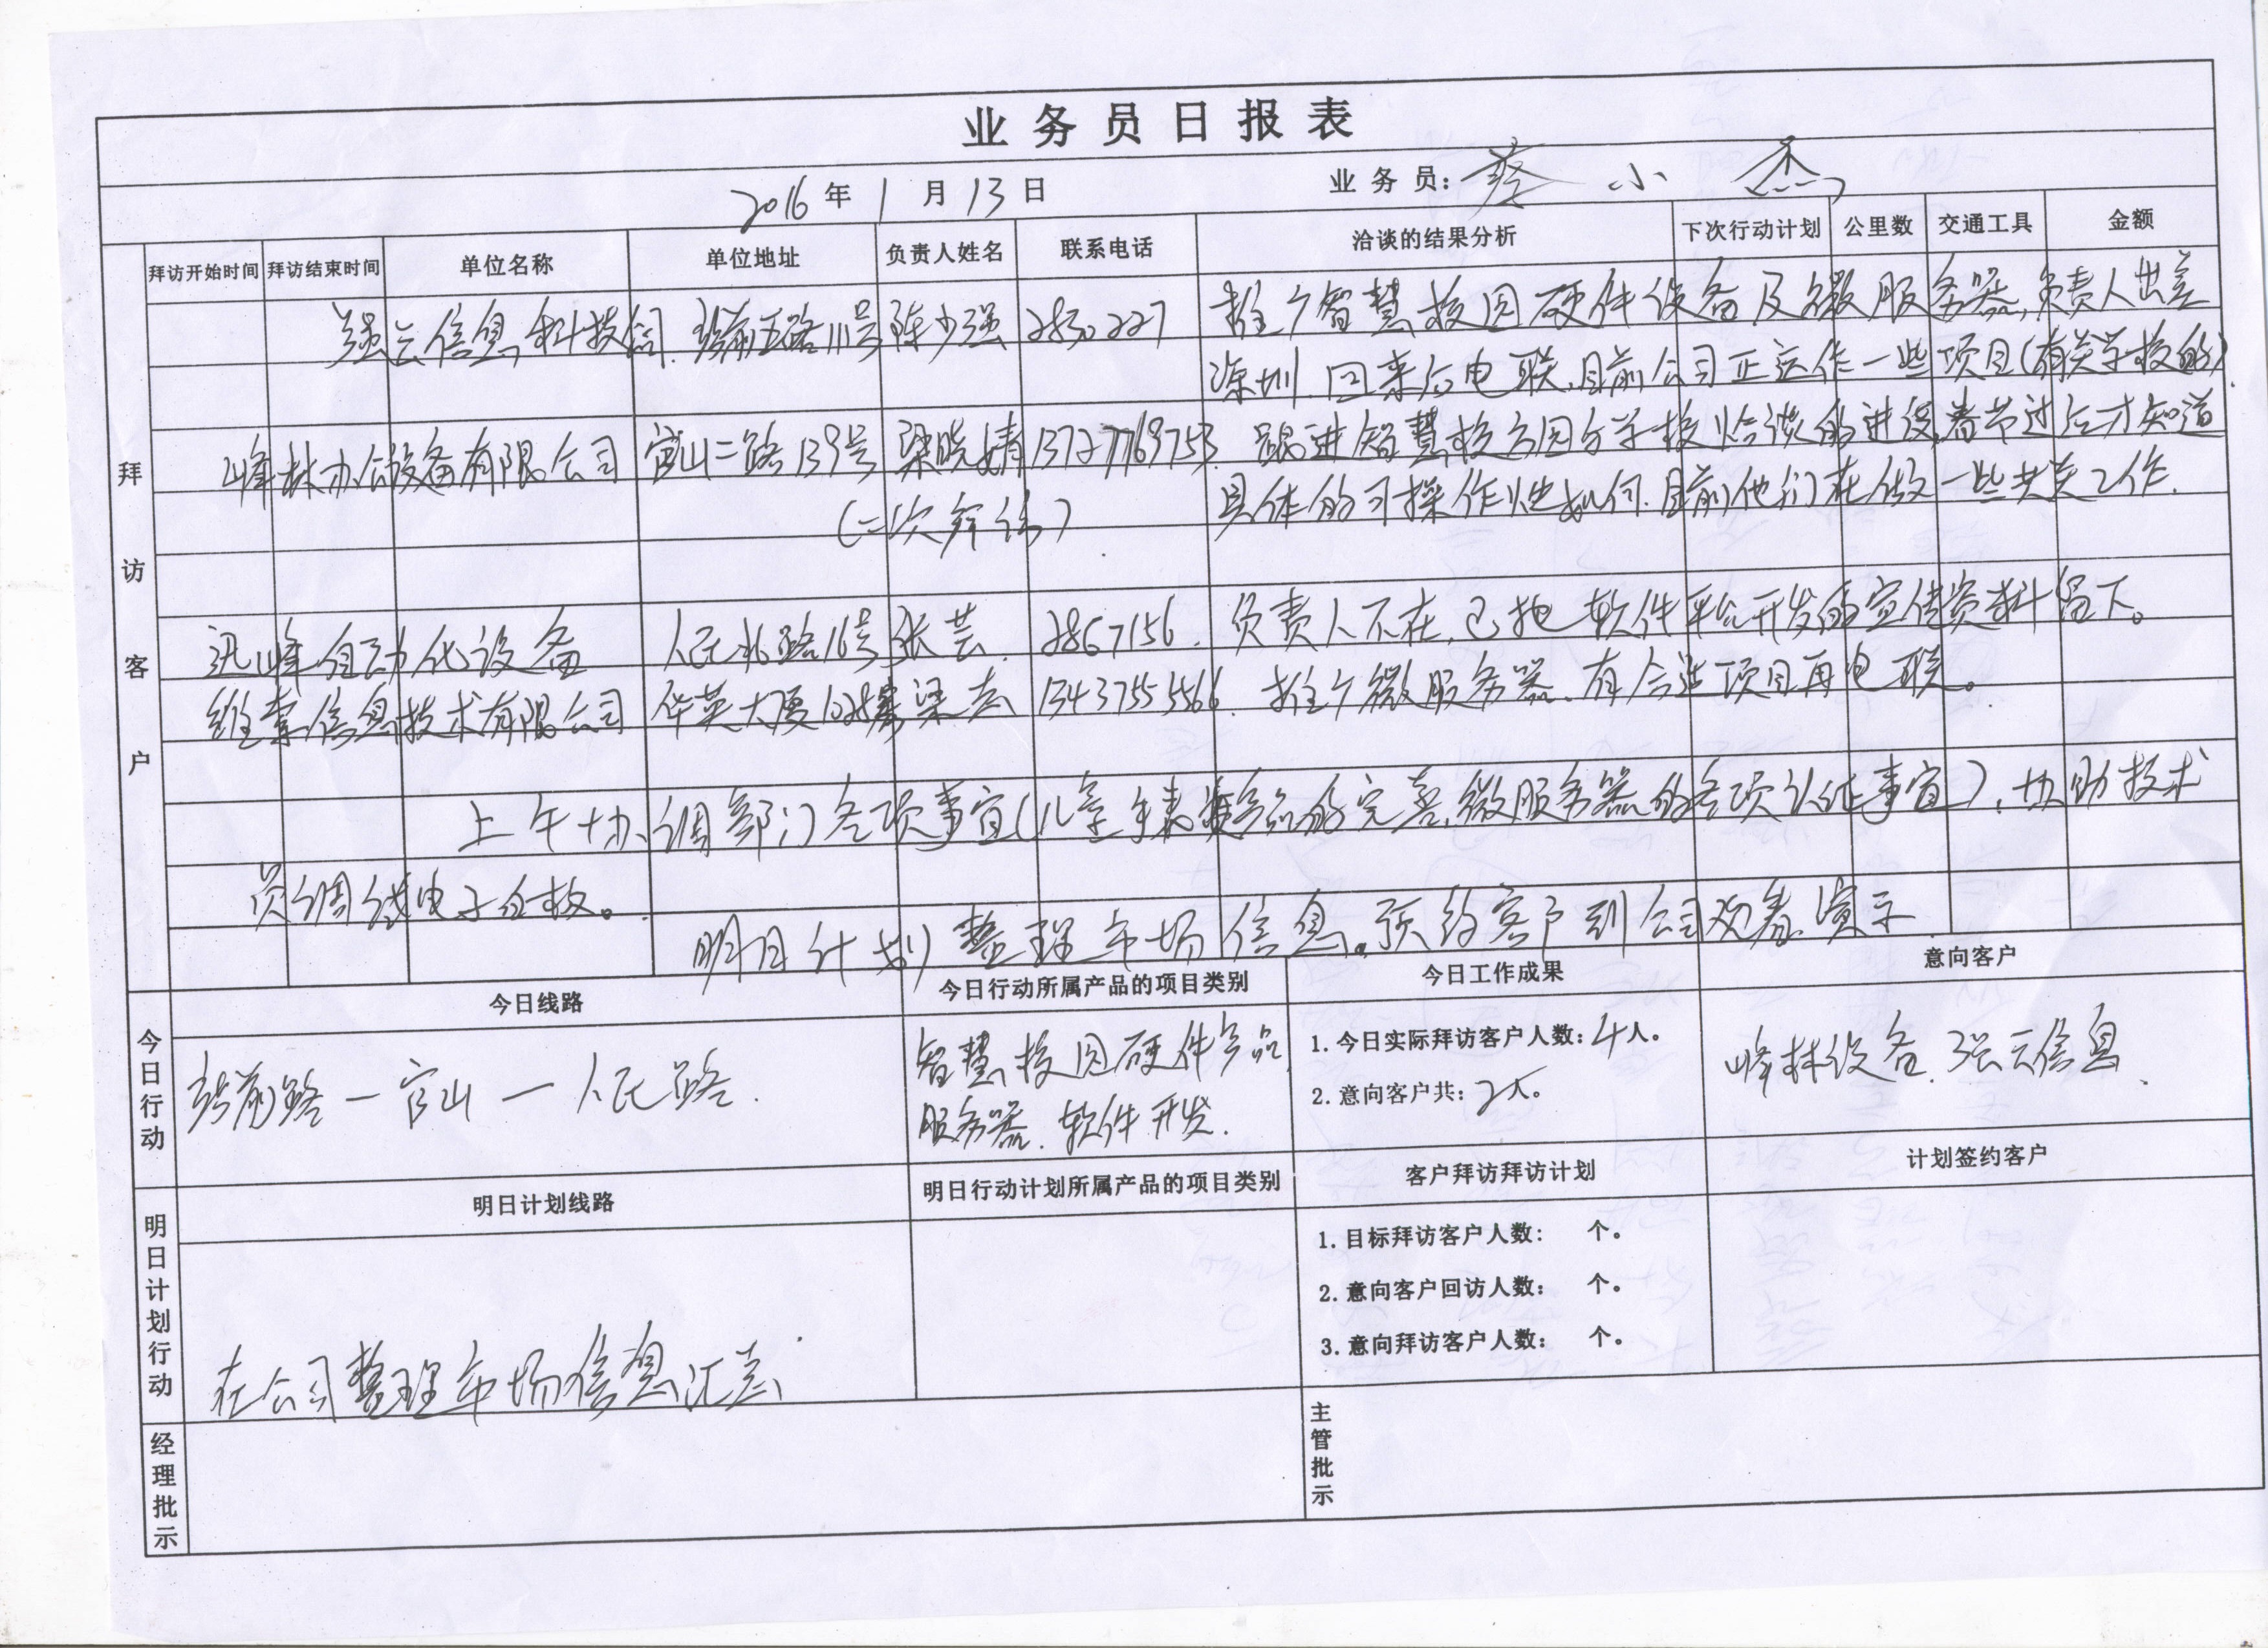 业务员日报表
2016年1月13日 业务员:蔡小杰
拜访客户
拜访开始时间 拜访结束时间 单位名称 单位地址 负责人姓名 联系电话 洽谈的结果分析 下次行动计划 公里数 交通工具 金额
强云信息科技公司. 站前五路111号 陈少强 2850227 推广智慧校园硬件设备及微服务器,负责人出差
深圳.回来后电联,目前公司正运作一些项目(有关学校的).
峰林办公设备有限公司 官山二路139号 梁晓婧 13727769753. 跟进智慧校园与学校恰谈的进设,春节过后才知道
(二次拜访) 具体的可操作性如何.目前他们在做一些共关工作.
迅峰自动化设备 人民北路16号 张芸. 2867156. 负责人不在,已把软件平台开发的宣传资料留下。
维拿信息技术有限公司 华英大厦 梁 13437555566. 推广微服务器.有合适项目再电联。
上午协调部门各项事宜(儿童手表的完善,微服务器的各项认证事宜),协助技术
员调线电子白板。
明日计划整理市场信息。预约客户到公司观看演示
今日行动
今日线路 今日行动所属产品的项目类别 今日工作成果 意向客户
站前路一官山一人民路.
智慧校园硬件产品,
服务器.软件开发.
1.今日实际拜访客户人数:4人。
2.意向客户共:2人。
峰林设备.强云信息.
明日计划行动
明日计划线路 明日行动计划所属产品的项目类别 客户拜访拜访计划 计划签约客户
在公司整理市场信息汇总
1.目标拜访客户人数: 个。
2.意向客户回访人数: 个。
3.意向拜访客户人数: 个。
经理批示
主管批示